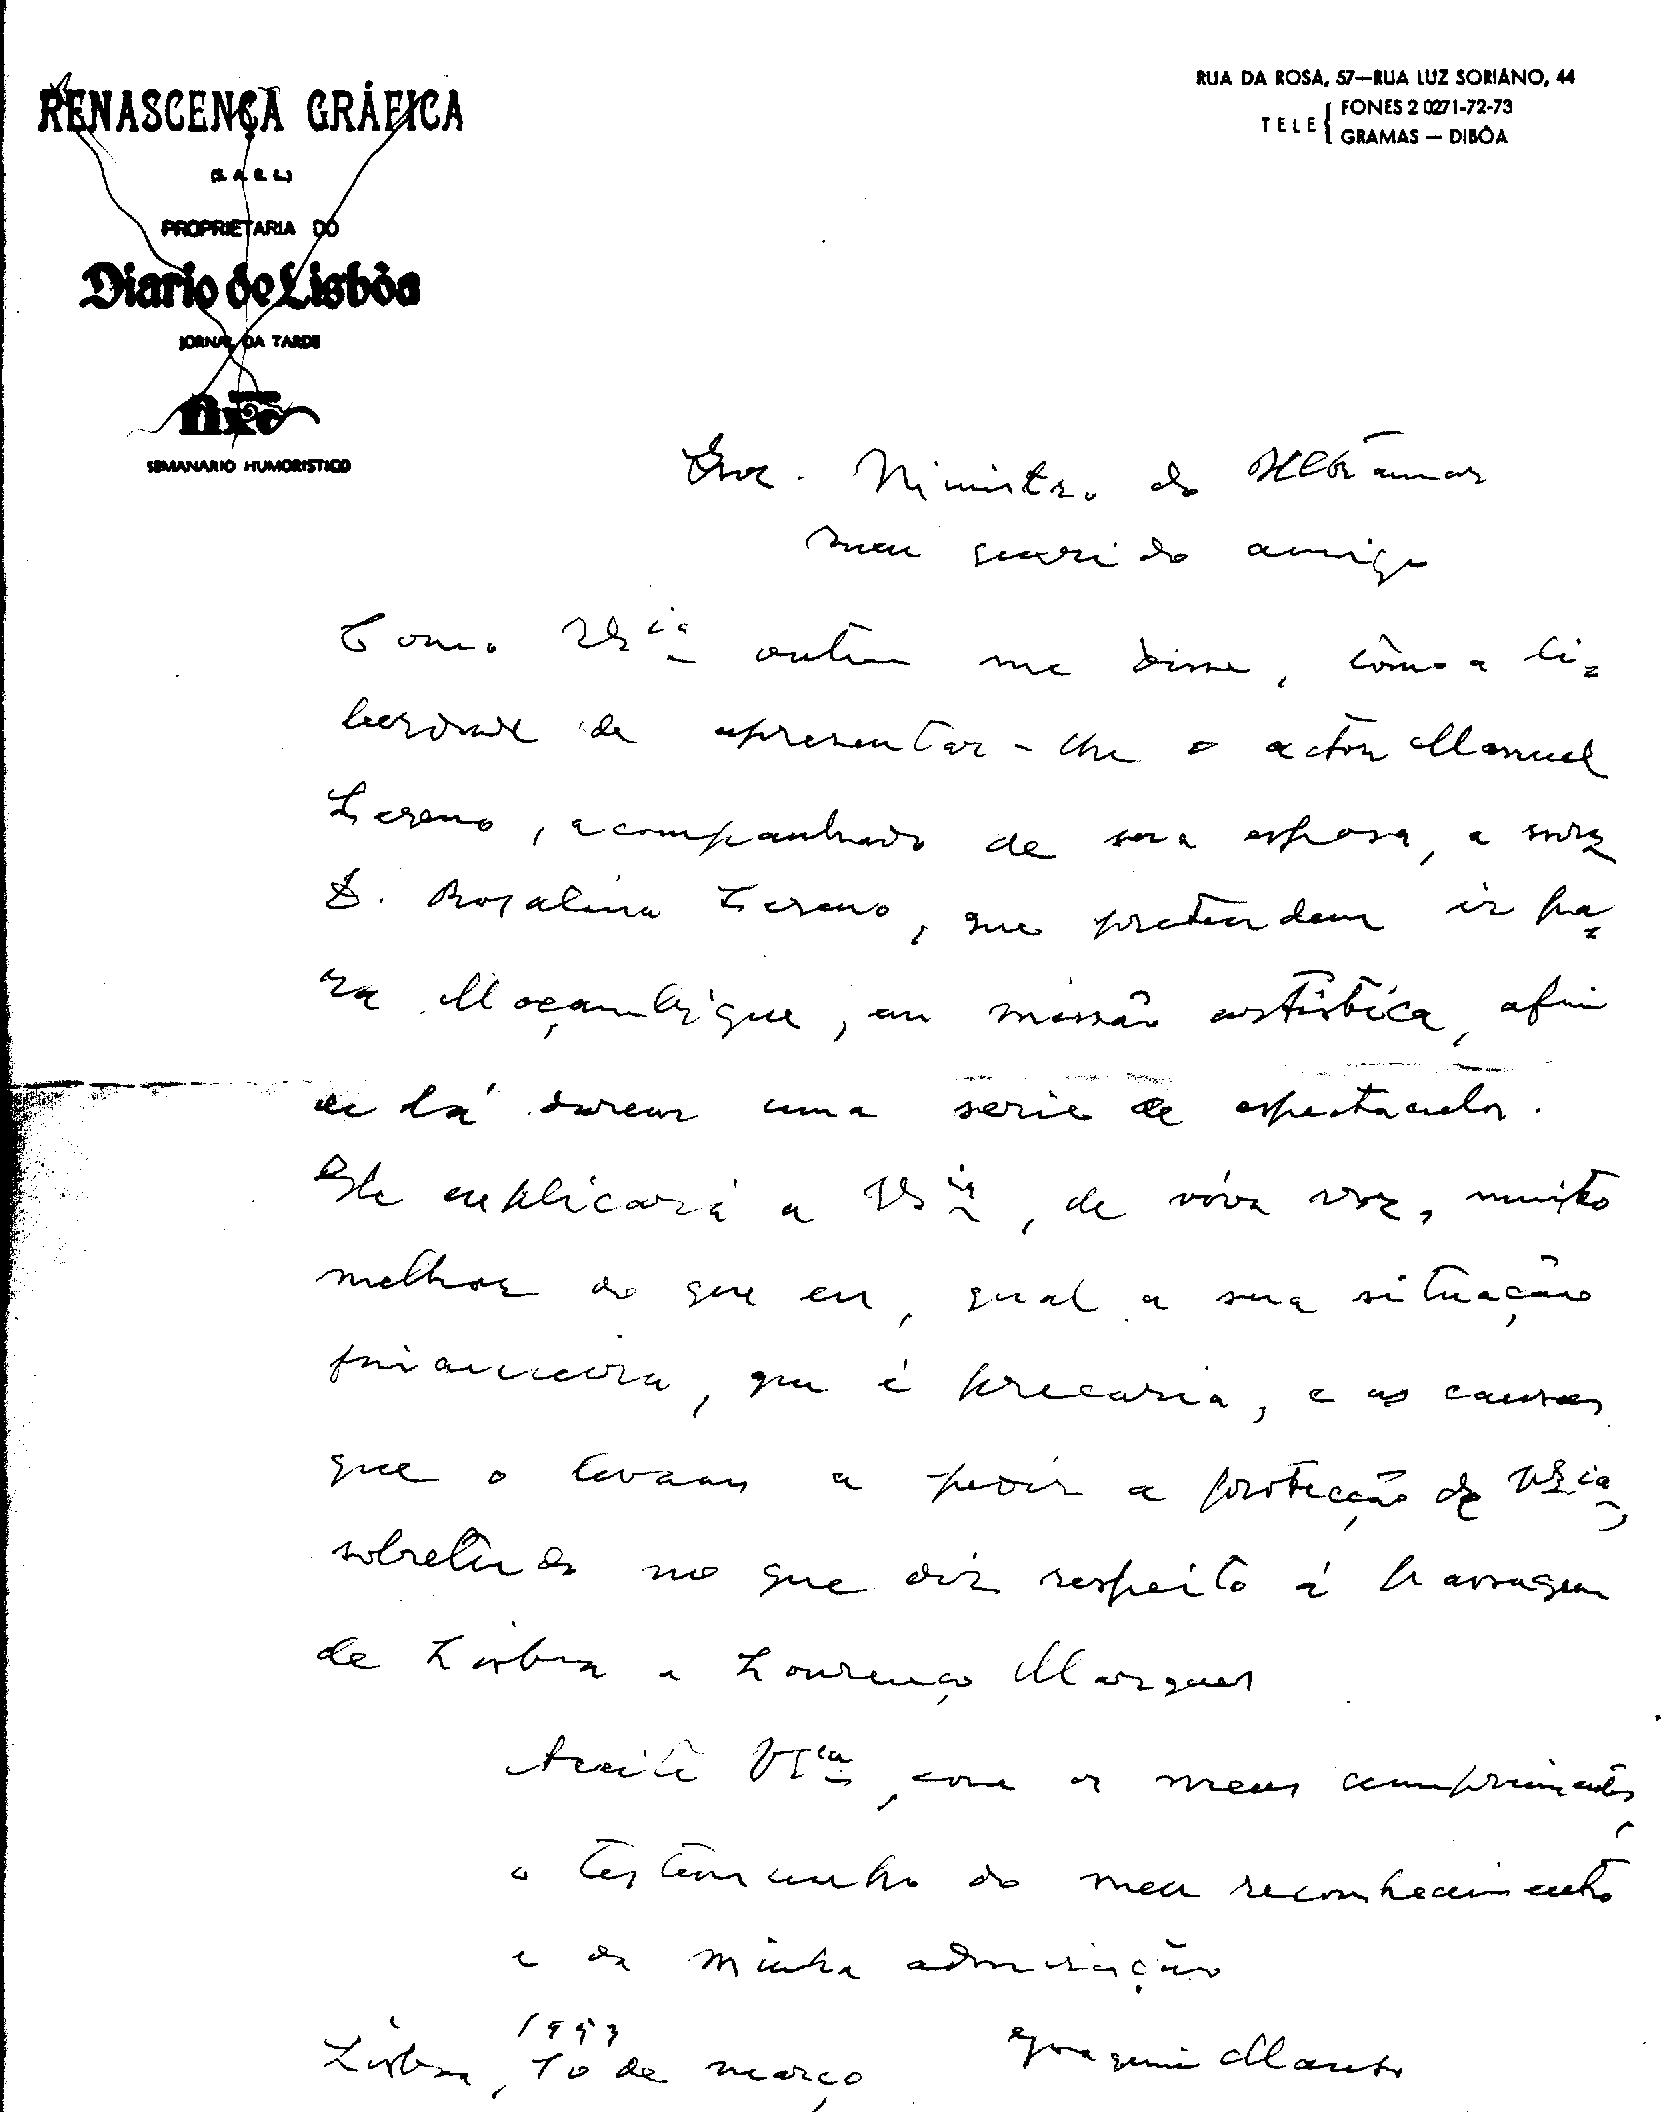 RENASCENÇA GRÁFICA
(S. A. R. L.)
PROPRIETARIA DO
Diario de Lisbôa
JORNAL DA TARDE
SEMANARIO HUMORISTICO
RUA DA ROSA, 57—RUA LUZ SORIANO, 44
TELE { FONES 2 0271-72-73
GRAMAS — DIBÔA
Ministro do Ultramar
meu querido amigo
Como V. Ex.cia me disse, tômo a li=
berdade de apresentar-lhe o actor Manuel
Lereno, acompanhado de sua esposa, a snra
D. Rosalina Lereno, que pretendem ir pa=
ra Moçambique, em missão artística, afim
de lá darem uma serie de espectaculos.
Ele explicará a V. Ex.cia, de viva voz, muito
melhor do que eu, qual a sua situação
financeira, que é precaria, e as causas
que o levam a pedir a protecção de V. Ex.cia,
sobretudo no que diz respeito á passagem
de Lisboa a Lourenço Marques
Aceite V. Ex.cia, com os meus cumprimentos,
o testemunho do meu reconhecimento
e da minha admiração
Lisboa, 10 de março
1953
Joaquim Manso